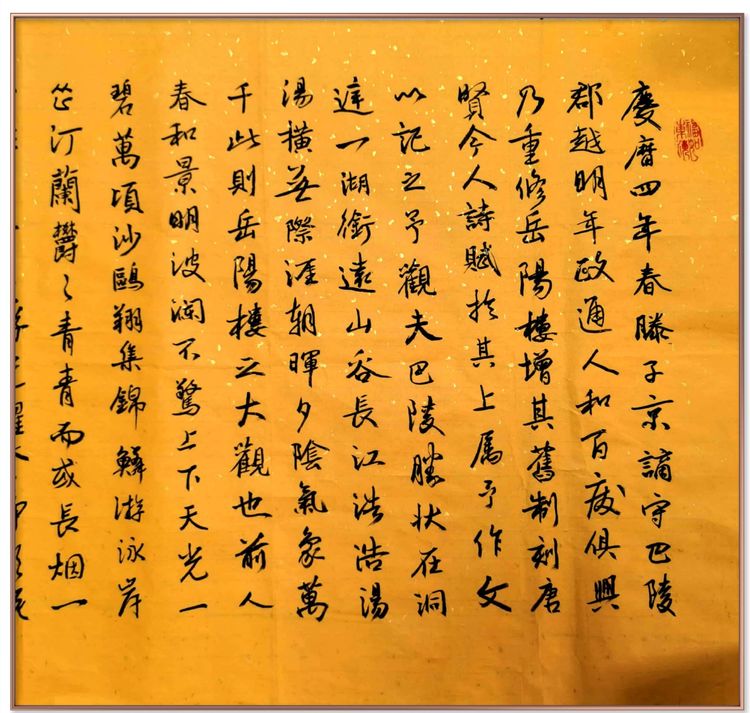 慶曆四年春滕子京謫守巴陵
郡越明年政通人和百廢俱興
乃重修岳陽樓增其舊制刻唐
賢今人詩賦於其上属予作文
以記之予觀夫巴陵勝狀在洞
庭一湖銜遠山吞長江浩浩湯
湯橫無際涯朝暉夕陰氣象萬
千此則岳陽樓之大觀也前人
春和景明波瀾不驚上下天光一
碧萬頃沙鷗翔集錦鱗游泳岸
芷汀蘭欝々青青而或長烟一